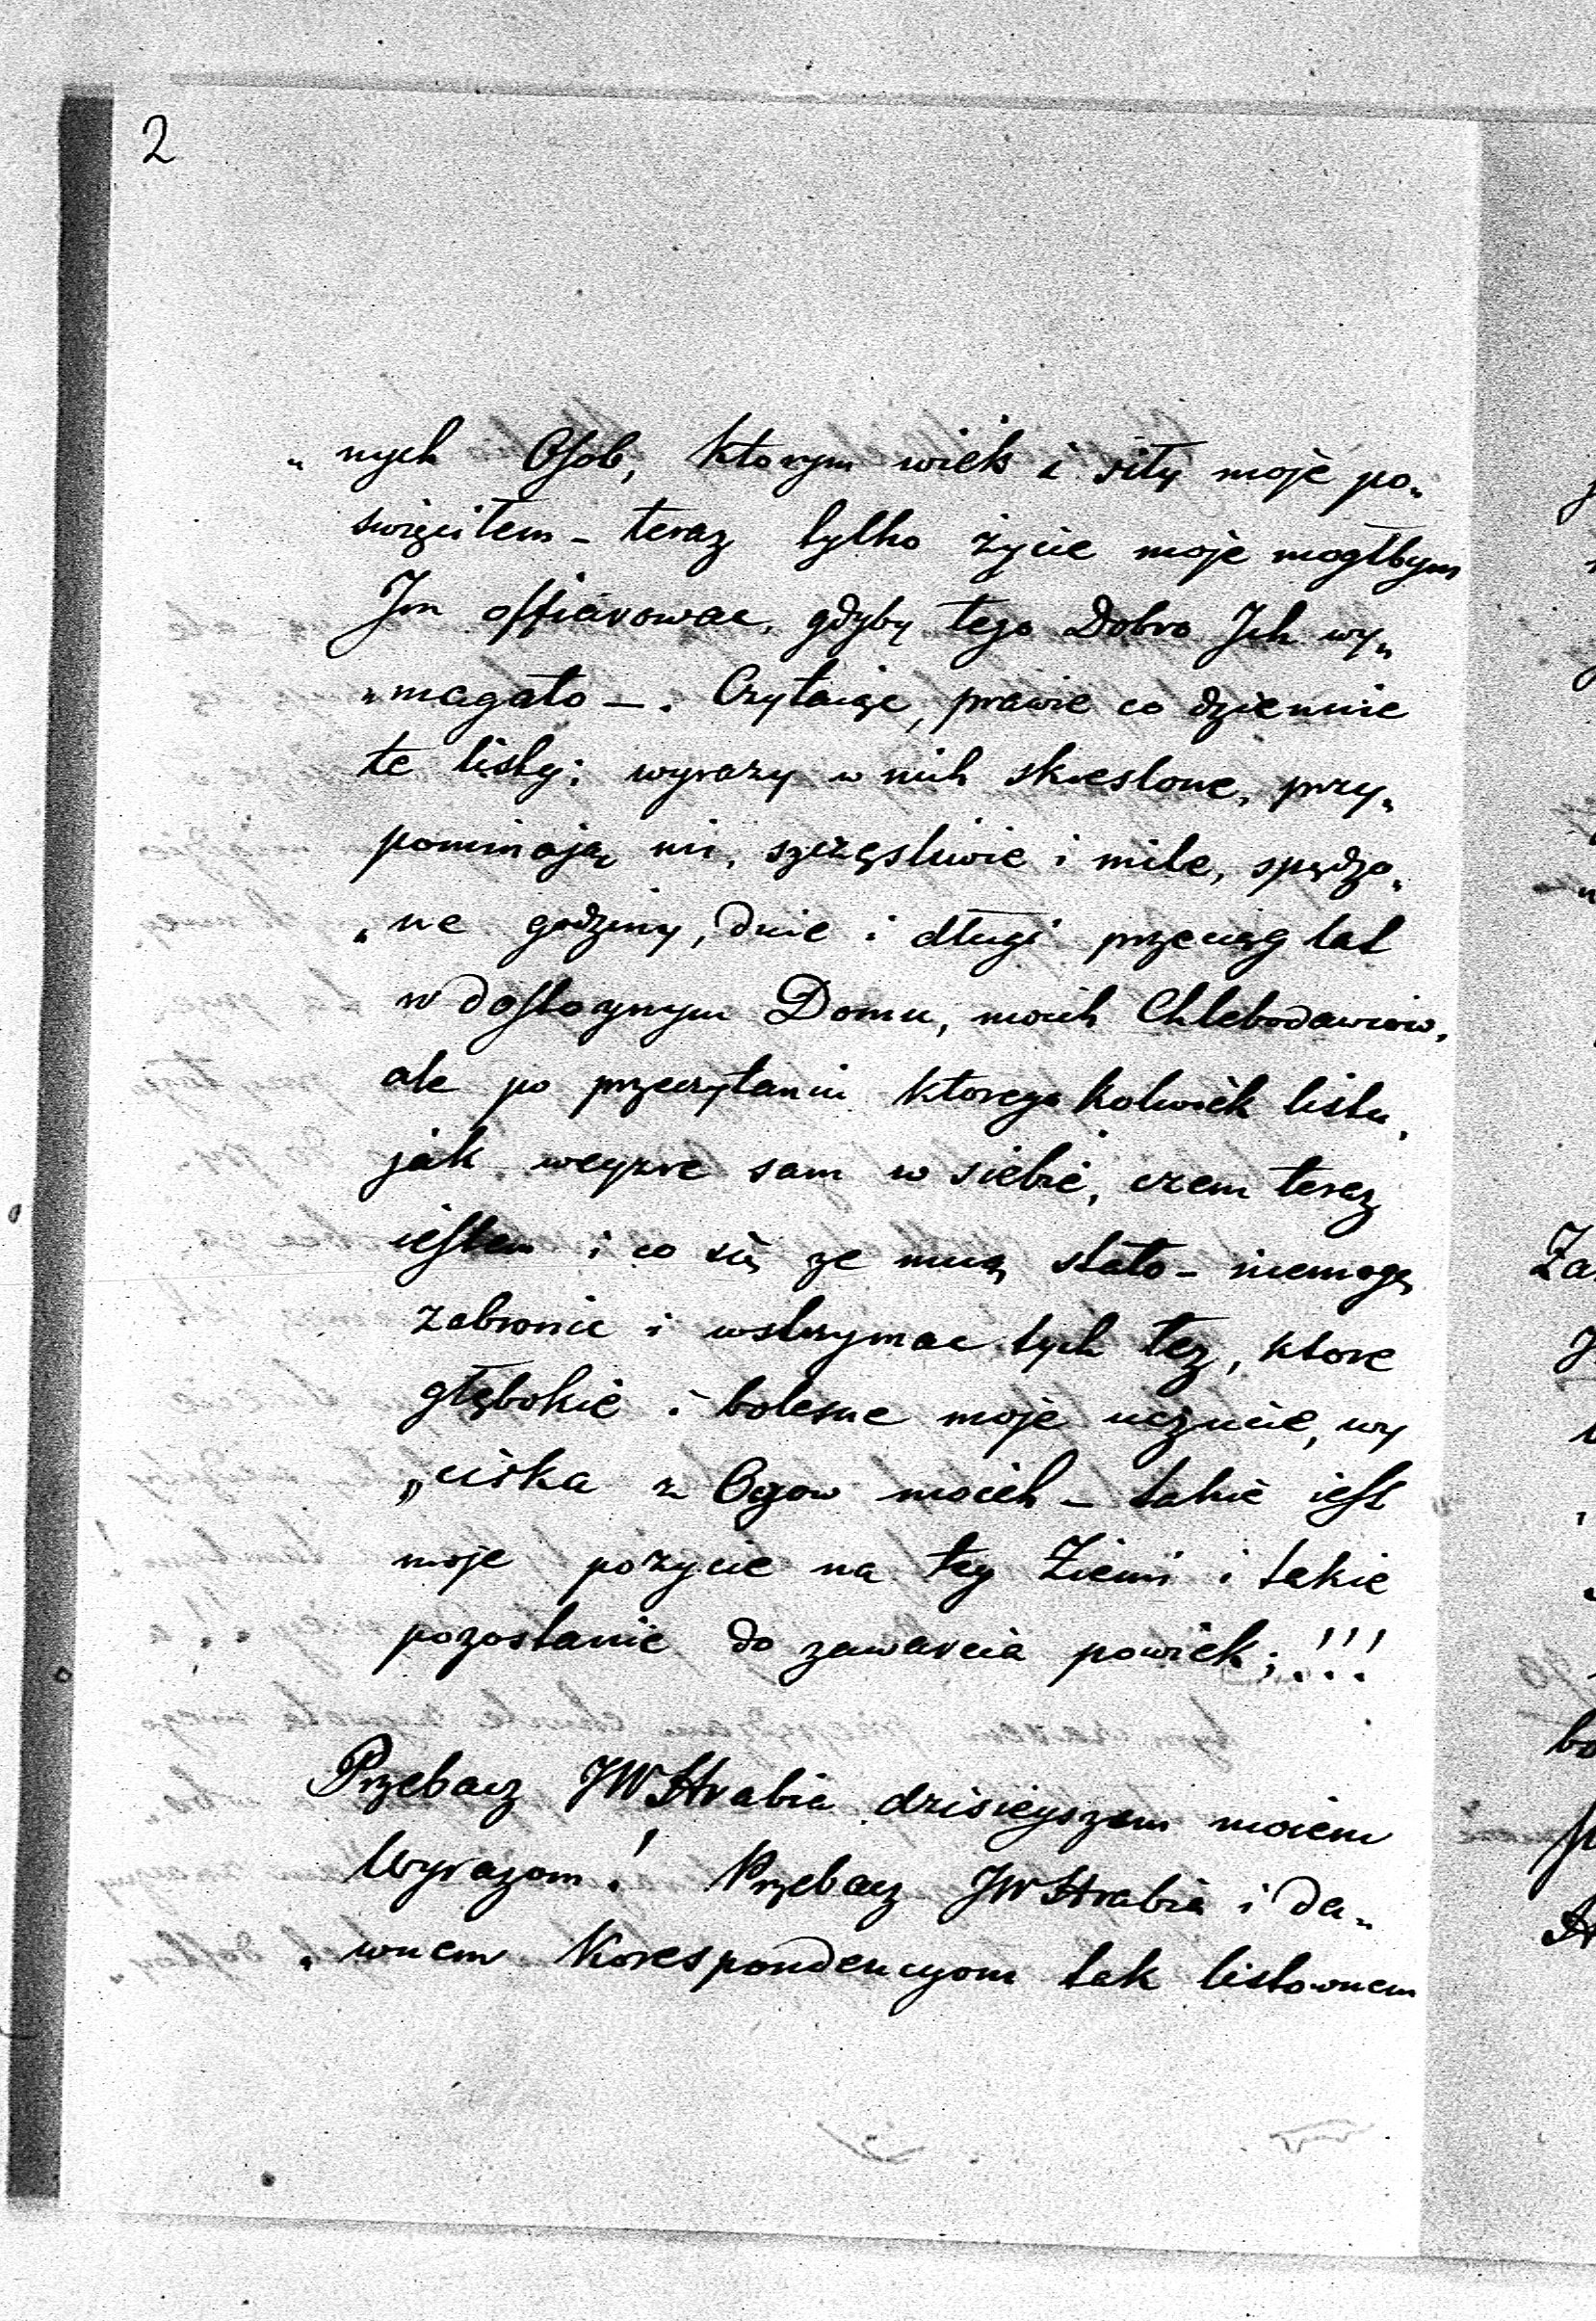 2
„nych Osob, ktorym wiek i siły moje po„
swięciłem – teraz tylko życie moje mogłbym
Im offiarowac, gdyby tego Dobro Ich wy„
„magało –. Czytaiąc, prawie co dziennie
te listy; wyrazy w nich skreslone, przy„
pominają mi, szczęsliwie i mile, spędzo„
„ne godziny, dnie i długi przeciąg lat
w dostoynym Domu, moich Chlebodawcow,
ale po przeczytaniu ktorego kolwiek listu,
jak weyzre sam w siebie, czem teraz
iestem i co się ze mną stało – niemogę
zabronic i wstrzymac tych łez, ktore
głębokie i bolesne moje uczucie, wy
„ciska z Oczow moich – takie iest
moje pożycie na tey Ziemi i takie
pozostanie do zawarcia powiek; !!!
Przebacz JW Hrabia dzisieyszem moiem
Wyrazom! Przebacz JW Hrabia i da„
„wnem Korespondencyom tak listownem